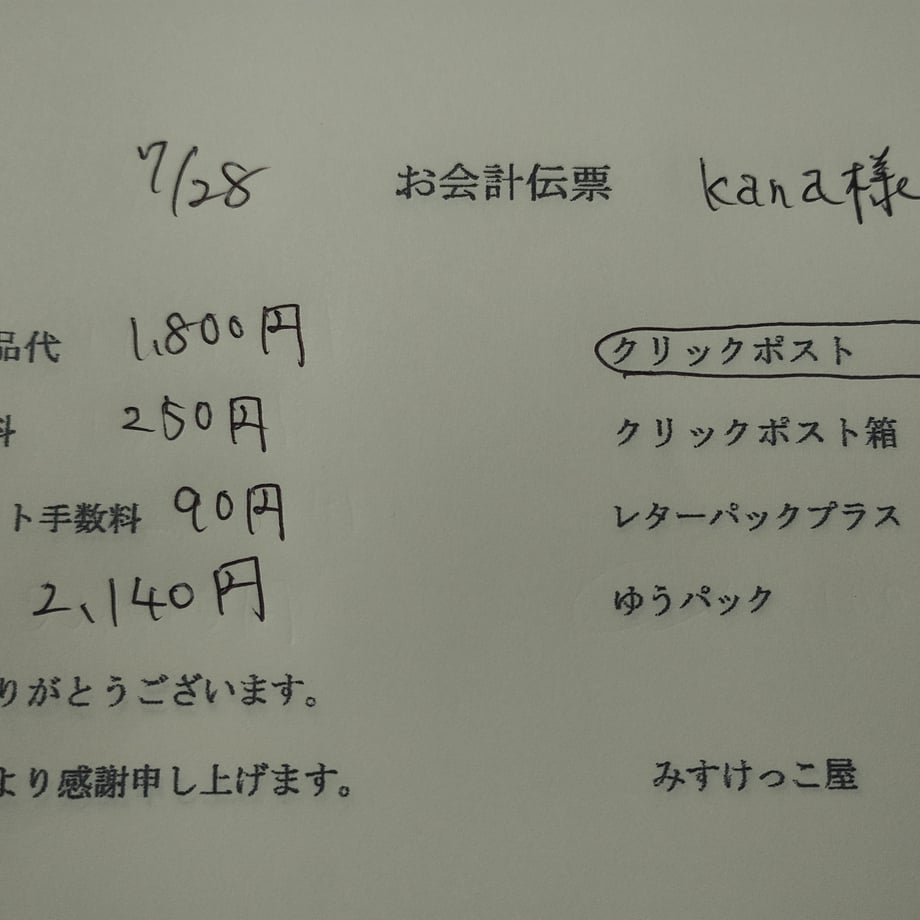 7/28 お会計伝票 kana様
品代 1,800円 クリックポスト
料 250円 クリックポスト箱
ト手数料 90円 レターパックプラス
2,140円 ゆうパック
りがとうございます。
より感謝申し上げます。 みすけっこ屋